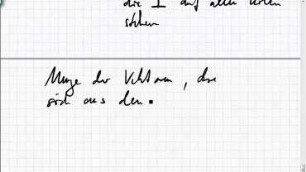 die ⊥ auf allen
stehen
Menge der Vektoren, die
sich aus den